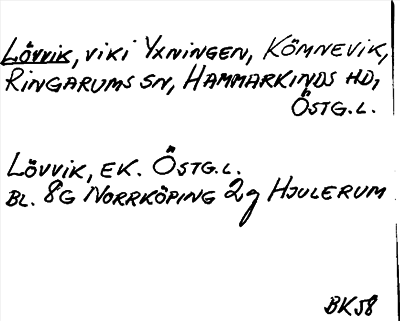 Lövvik, vik i Yxningen, Kömnevik,
Ringarums sn, Hammarkinds hd,
Östg.l.
Lövvik, ek. Östg.l.
Bl. 8G Norrköping 2g Hjulerum
BK58